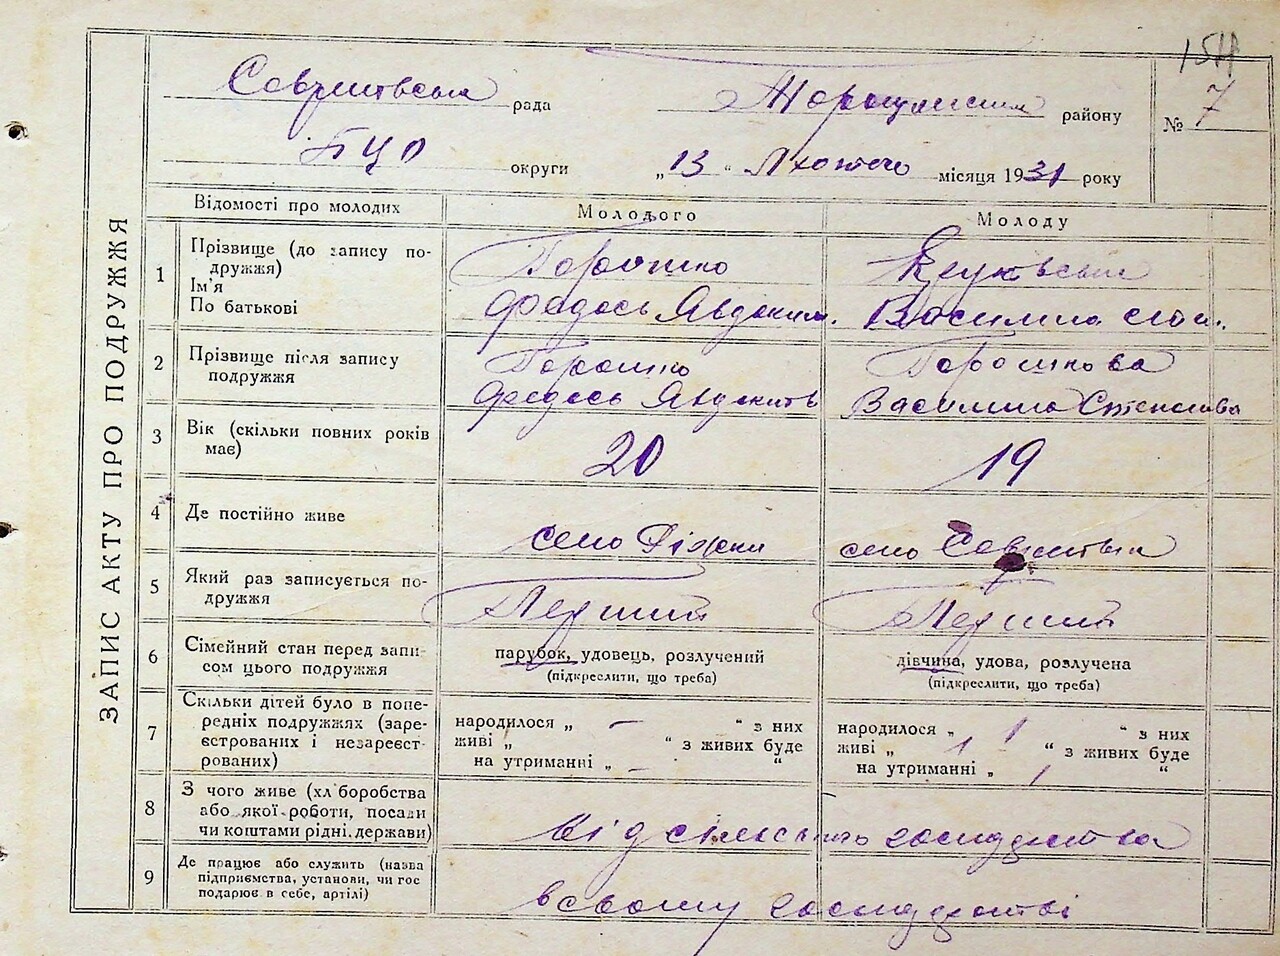 7
рада
району
№
БЦО округи „ 13 “ Лютого місяця 1931 року
ЗАПИС АКТУ ПРО ПОДРУЖЖЯ
Відомості про молодих
Молодого
Молоду
1
Прізвище (до запису по-
дружжя)
Ім'я
По батькові
Горошко
Федось Явдоким.
Василина
2
Прізвище після запису
подружжя
Горошко
Федось
Горошкова
Василина
3
Вік (скільки повних років
має)
20
19
4
Де постійно живе
село
село
5
Який раз записується по-
дружжя
Перший
Перший
6
Сімейний стан перед запи-
сом цього подружжя
парубок, удовець, розлучений
(підкреслити, що треба)
дівчина, удова, розлучена
(підкреслити, що треба)
7
Скільки дітей було в попе-
редніх подружжях (заре-
єстрованих і незареєст-
рованих)
народилося „ – “ з них
живі „ “ з живих буде
на утриманні „ – “
народилося „ 1 “ з них
живі „ 1 “ з живих буде
на утриманні „ 1 “
8
З чого живе (хліборобства
або якої роботи, посади
чи коштами рідні, держави)
від сільського господарства
9
Де працює або служить (назва
підприємства, установи, чи гос
подарює в себе, артілі)
в свому господарстві